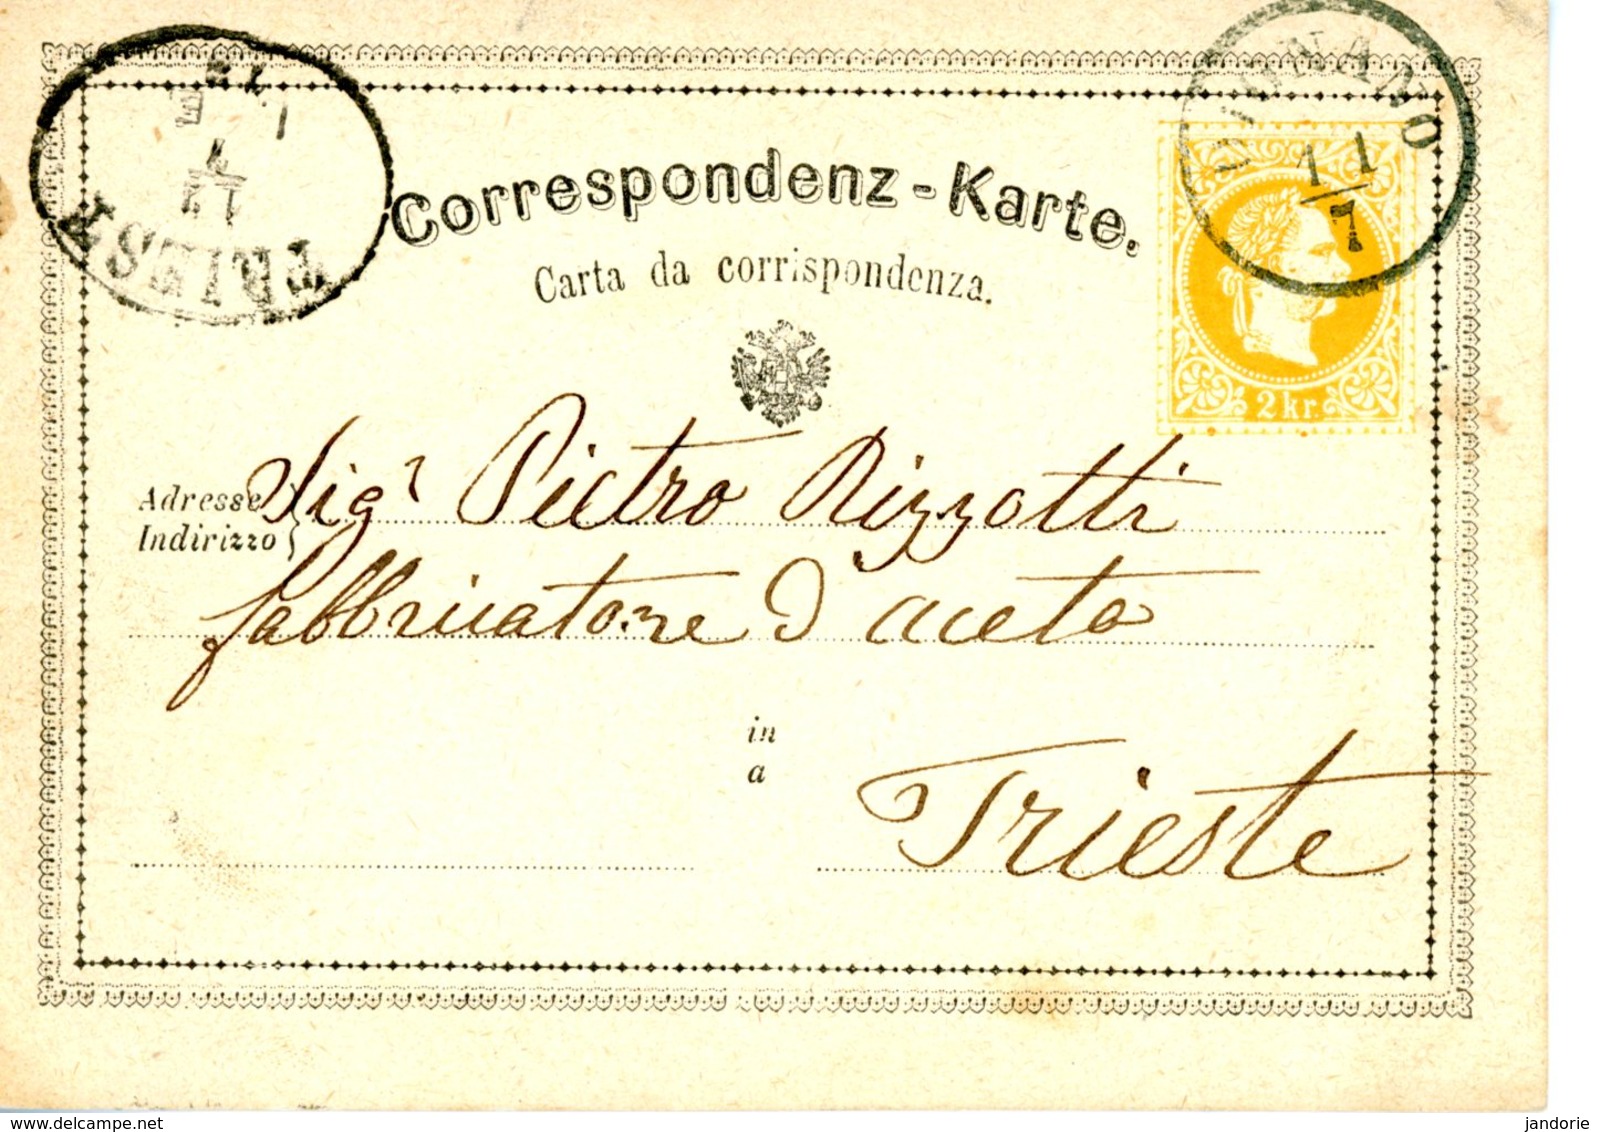 TRIEST
11
7
Correspondenz-Karte.
Carta da corrispondenza.
2 kr.
Adresse
Indirizzo
Sigr Pietro Rizzotti
fabbricatore d'aceto
in
a
Trieste
delcampe.net
jandorie